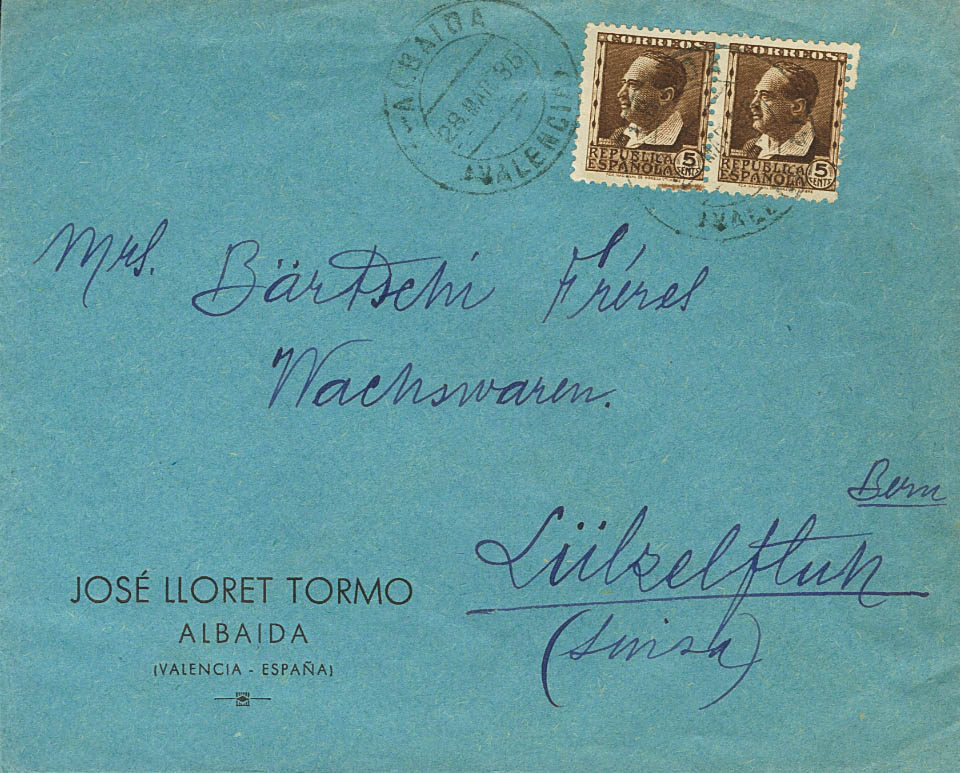 ALBAIDA
28 MAY 35
(VALENCIA)
CORREOS CORREOS
REPUBLICA ESPAÑOLA 5 CENTS
REPUBLICA ESPAÑOLA 5 CENTS
(VALE
Mrs. Bärtschi Fréres
Wachswaren.
Bern
Lülzelfluh
(Suiza)
JOSÉ LLORET TORMO
ALBAIDA
(VALENCIA - ESPAÑA)